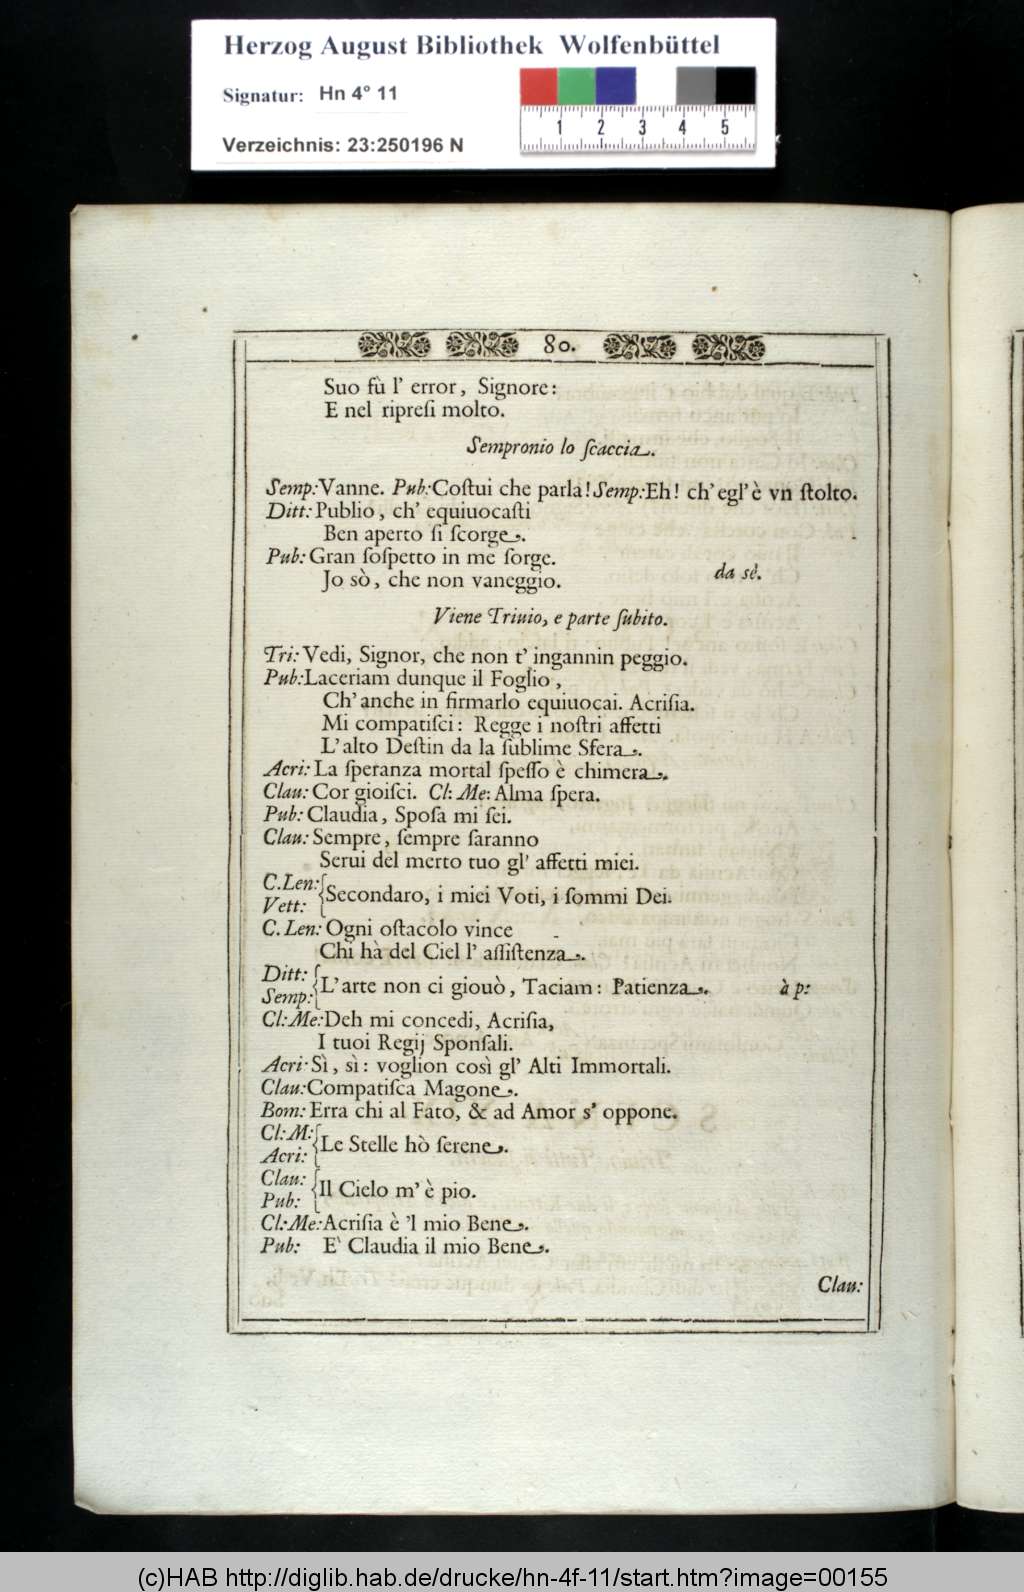 Herzog August Bibliothek Wolfenbüttel
Signatur: Hn 4° 11
Verzeichnis: 23:250196 N
1 2 3 4 5
80.
Suo fù l' error, Signore:
E nel ripreſi molto.
Sempronio lo ſcaccia.
Semp: Vanne. Pub: Coſtui che parla! Semp: Eh! ch' egl'è vn ſtolto.
Ditt: Publio, ch' equiuocaſti
Ben aperto ſi ſcorge.
Pub: Gran ſoſpetto in me ſorge.
Jo sò, che non vaneggio. da sè.
Viene Triuio, e parte ſubito.
Tri: Vedi, Signor, che non t' ingannin peggio.
Pub: Laceriam dunque il Foglio,
Ch' anche in firmarlo equiuocai. Acriſia.
Mi compatiſci: Regge i noſtri affetti
L' alto Deſtin da la ſublime Sfera.
Acri: La ſperanza mortal ſpeſſo è chimera.
Clau: Cor gioiſci. Cl: Me: Alma ſpera.
Pub: Claudia, Spoſa mi ſei.
Clau: Sempre, ſempre ſaranno
Serui del merto tuo gl' affetti miei.
C. Len:
Vett: { Secondaro, i miei Voti, i ſommi Dei.
C. Len: Ogni oſtacolo vince
Chi hà del Ciel l' aſſiſtenza.
Ditt:
Semp: { L' arte non ci giouò, Taciam: Patienza. à p:
Cl: Me: Deh mi concedi, Acriſia,
I tuoi Regij Sponſali.
Acri: Sì, sì: voglion così gl' Alti Immortali.
Clau: Compatiſca Magone.
Bom: Erra chi al Fato, & ad Amor s' oppone.
Cl: M:
Acri: { Le Stelle hò ſerene.
Clau:
Pub: { Il Cielo m' è pio.
Cl: Me: Acriſia è 'l mio Bene.
Pub: E' Claudia il mio Bene.
Clau:
(c)HAB http://diglib.hab.de/drucke/hn-4f-11/start.htm?image=00155